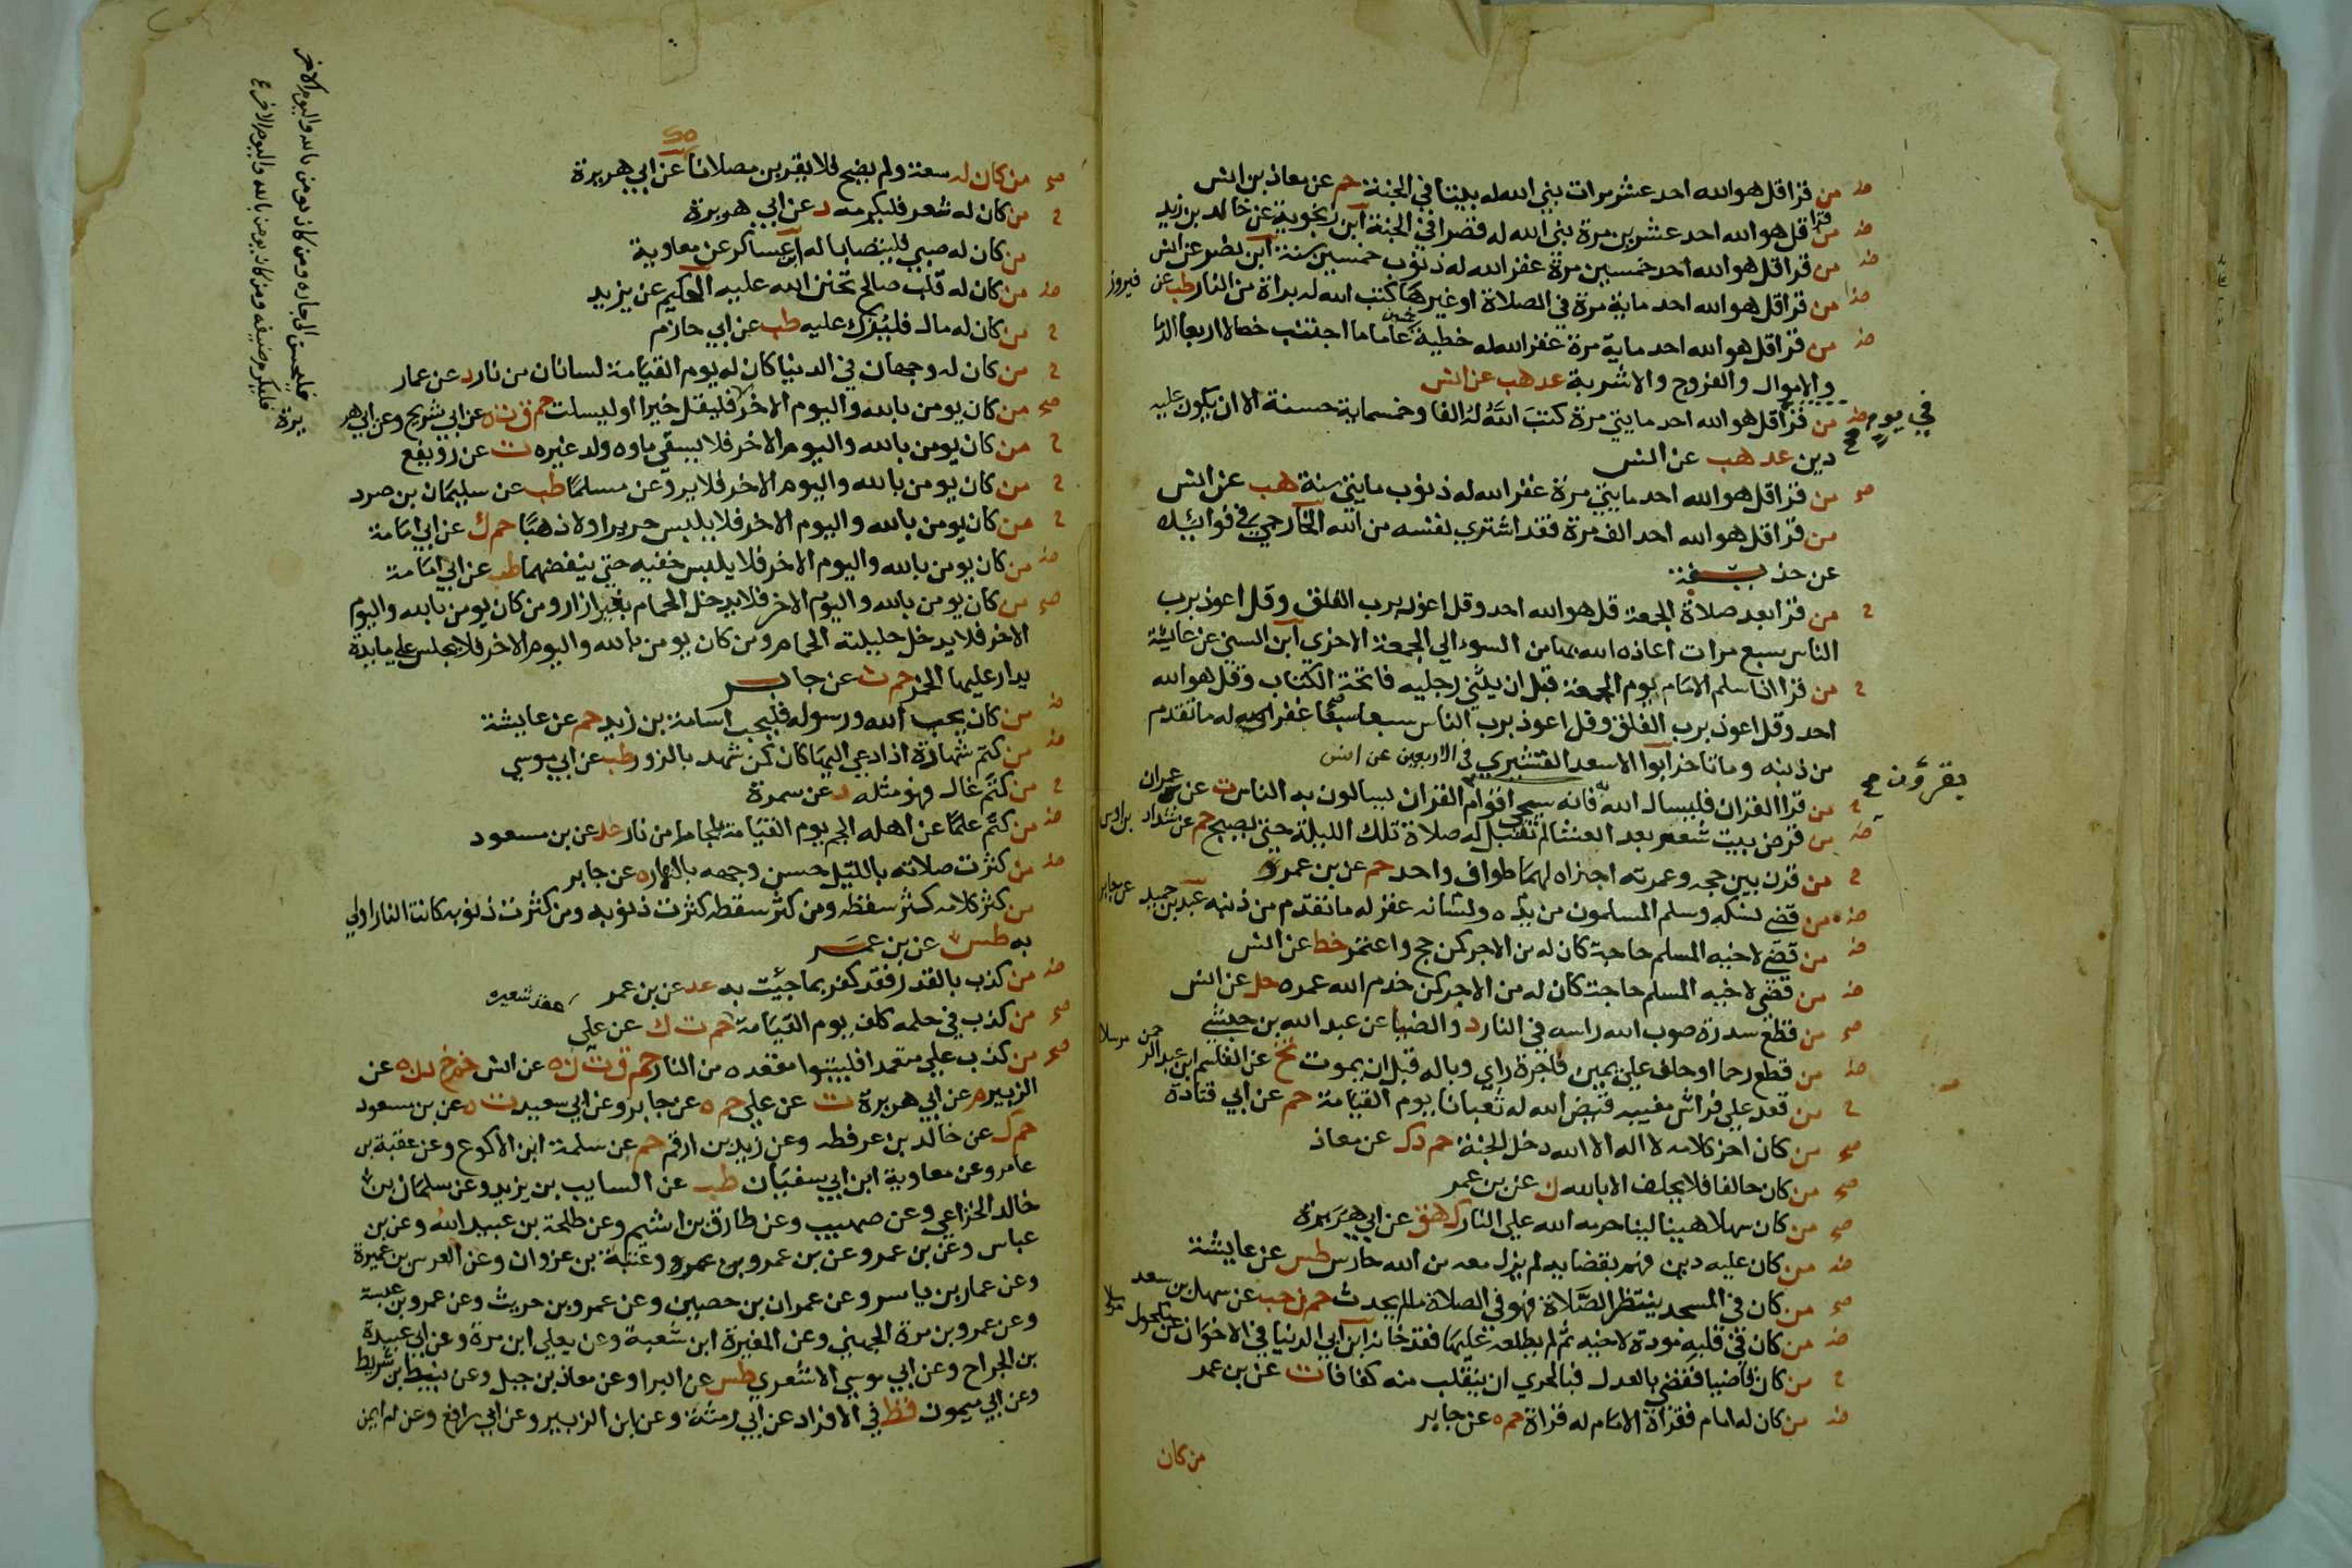 من قرا قل هو الله احد عشر مرات بني الله له بيتا في الجنة حم عن معاذ بن انس
من قرا قل هو الله احد عشرين مرة بني الله له قصرا في الجنة ابن زنجوية عن خالد بن زيد
من قرا قل هو الله احد خمسين مرة غفر الله له ذنوب خمسين سنة ابن نصر عن انس
من قرا قل هو الله احد ماية مرة في الصلاة او غيرها كتب الله له براة من النار طب عن فيروز
من قرا قل هو الله احد ماية مرة غفر الله له خطية خمسين عاما ما اجتنب خصالا اربعا الدما
والاموال والفروج والاشربة عد هب عن انس
في يوم
من قرا قل هو الله احد مايتي مرة كتب الله له الفا وخمسماية حسنة الا ان يكون عليه
دين عد هب عن انس
من قرا قل هو الله احد مايتي مرة غفر الله له ذنوب مايتي سنة هب عن انس
من قرا قل هو الله احد الف مرة فقد اشتري نفسه من الله الخارجي في فوائده
عن حذيفة
من قرا بعد صلاة الجمعة قل هو الله احد وقل اعوذ برب الفلق وقل اعوذ برب
الناس سبع مرات اعاذه الله بها من السوء الي الجمعة الاخري ابن السني عن عايشة
من قرا اذا سلم الامام يوم الجمعة قبل ان يثني رجليه فاتحة الكتاب وقل هو الله
احد وقل اعوذ برب الفلق وقل اعوذ برب الناس سبعا سبعا غفر الله له ما تقدم
من ذنبه وما تاخر ابوا الاسعد القشيري في الاربعين عن انس
يقرؤن
من قرا القران فليسال الله به فانه سيجي اقوام القران يسالون به الناس ت عن عمران
من قرض بيت شعر بعد العشا لم تقبل له صلاة تلك الليلة حتي يصبح حم عن شداد بن اوس
من قرن بين حجه وعمرته اجزاه لهما طواف واحد حم عن بن عمرو
من قضي نسكه وسلم المسلمون من يده ولسانه غفر له ما تقدم من ذنبه عبد بن حميد عن جابر
من قضي لاخيه المسلم حاجة كان له من الاجر كمن حج واعتمر خط عن انس
من قضي لاخيه المسلم حاجة كان له من الاجر كمن خدم الله عمره حل عن انس
من قطع سدرة صوب الله راسه في النار د والضيا عن عبد الله بن حبشي
من قطع رحما او حلف علي يمين فاجرة راي وباله قبل ان يموت تخ عن القاسم ابن عبد الرحمن مرسلا
من قعد علي فراش مغيبه قيض الله له ثعبانا يوم القيامة حم عن ابي قتادة
من كان اخر كلامه لا اله الا الله دخل الجنة حم د ك عن معاذ
من كان حالفا فلا يحلف الا بالله ن عن بن عمر
من كان سهلا هينا لينا حرمه الله علي النار ك هق عن ابي هريرة
من كان عليه دين فهم بقضايه لم يزل معه من الله حارس طس عن عايشة
من كان في المسجد ينتظر الصلاة فهو في الصلاة ما لم يحدث حم ن حب عن سهل بن سعد
من كان في قلبه مودة لاخيه ثم لم يطلعه عليها فقد خانه ابن ابي الدنيا في الاخوان عن مكحول مرسلا
من كان قاضيا فقضي بالعدل فبالحري ان ينقلب منه كفافا ت عن بن عمر
من كان له امام فقراة الامام له قراة حم ه عن جابر
من كان
من كان له سعة ولم يضح فلا يقربن مصلانا عن ابي هريرة
من كان له شعر فليكرمه د عن ابي هريرة
من كان له صبي فليتصابا له ابن عساكر عن معاوية
من كان له قلب صالح تحنن الله عليه الحكيم عن يزيد
من كان له مال فلير عليه طب عن ابي حازم
من كان له وجهان في الدنيا كان له يوم القيامة لسانان من نار د عن عمار
من كان يومن بالله واليوم الاخر فليقل خيرا او ليسكت حم ق ت ه عن ابي شريح وعن ابي هريرة
فليحسن الي جاره ومن كان يومن بالله واليوم الاخر
فليكرم ضيفه ومن كان يومن بالله واليوم الاخر
من كان يومن بالله واليوم الاخر فلا يسقي ماوه ولد غيره ت عن رويفع
من كان يومن بالله واليوم الاخر فلا يروعن مسلما طب عن سليمان بن صرد
من كان يومن بالله واليوم الاخر فلا يلبس حريرا ولا ذهبا حم ك عن ابي امامة
من كان يومن بالله واليوم الاخر فلا يلبس خفيه حتي ينفضهما طب عن ابي امامة
من كان يومن بالله واليوم الاخر فلا يدخل الحمام بغير ازار ومن كان يومن بالله واليوم
الاخر فلا يدخل حليلته الحمام ومن كان يومن بالله واليوم الاخر فلا يجلس علي مايدة
يدار عليها الخمر حم ت عن جابر
من كان يحب الله ورسوله فليحب اسامة بن زيد حم عن عايشة
من كتم شهادة اذا دعي اليها كان كمن شهد بالزور طب عن ابي موسي
من كتم غال فهو مثله د عن سمرة
من كتم علما عن اهله الجم يوم القيامة لجاما من نار عد عن بن مسعود
من كثرت صلاته بالليل حسن وجهه بالنهار ه عن جابر
من كثر كلامه كثر سقطه ومن كثر سقطه كثرت ذنوبه ومن كثرت ذنوبه كانت النار اولي
به طس عن بن عمر
من كذب بالقدر فقد كفر بما جيت به عد عن بن عمر
من كذب في حلمه كلف يوم القيامة عقد شعيره حم ت ك عن علي
من كذب علي متعمدا فليتبوا مقعده من النار حم ق ت ن ه عن انس حم خ د ن ه عن
الزبير م عن ابي هريرة ت عن علي حم ه عن جابر وعن ابي سعيد ت ه عن بن مسعود
حم ك عن خالد بن عرفطه وعن زيد بن ارقم حم عن سلمة ابن الاكوع وعن عقبة بن
عامر وعن معاوية ابن ابي سفيان طب عن السايب بن يزيد وعن سلمان بن
خالد الخزاعي وعن صهيب وعن طارق بن اشيم وعن طلحة بن عبيد الله وعن بن
عباس وعن بن عمر وعن بن عمرو بن عمرو وعتبة بن غزوان وعن العرس بن عميرة
وعن عمار بن ياسر وعن عمران بن حصين وعن عمرو بن حريث وعن عمرو بن عبسة
وعن عمرو بن مرة الجهني وعن المغيرة ابن شعبة وعن يعلي ابن مرة وعن ابي عبيدة
بن الجراح وعن ابي موسي الاشعري طس عن البرا وعن معاذ بن جبل وعن نبيط ابن شريط
وعن ابي ميمون قط في الافراد عن ابي رمثة وعن ابن الزبير وعن ابي رافع وعن ام ايمن